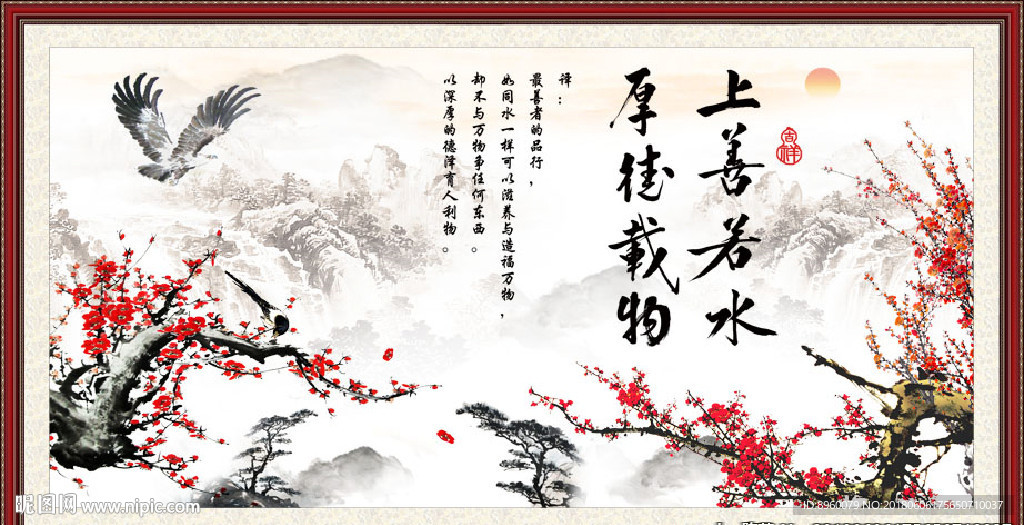 上善若水
厚德载物
吉祥
译：
最善者的品行，
如同水一样可以滋养与造福万物，
却不与万物争任何东西。
以深厚的德泽育人利物。
昵图网 www.nipic.com